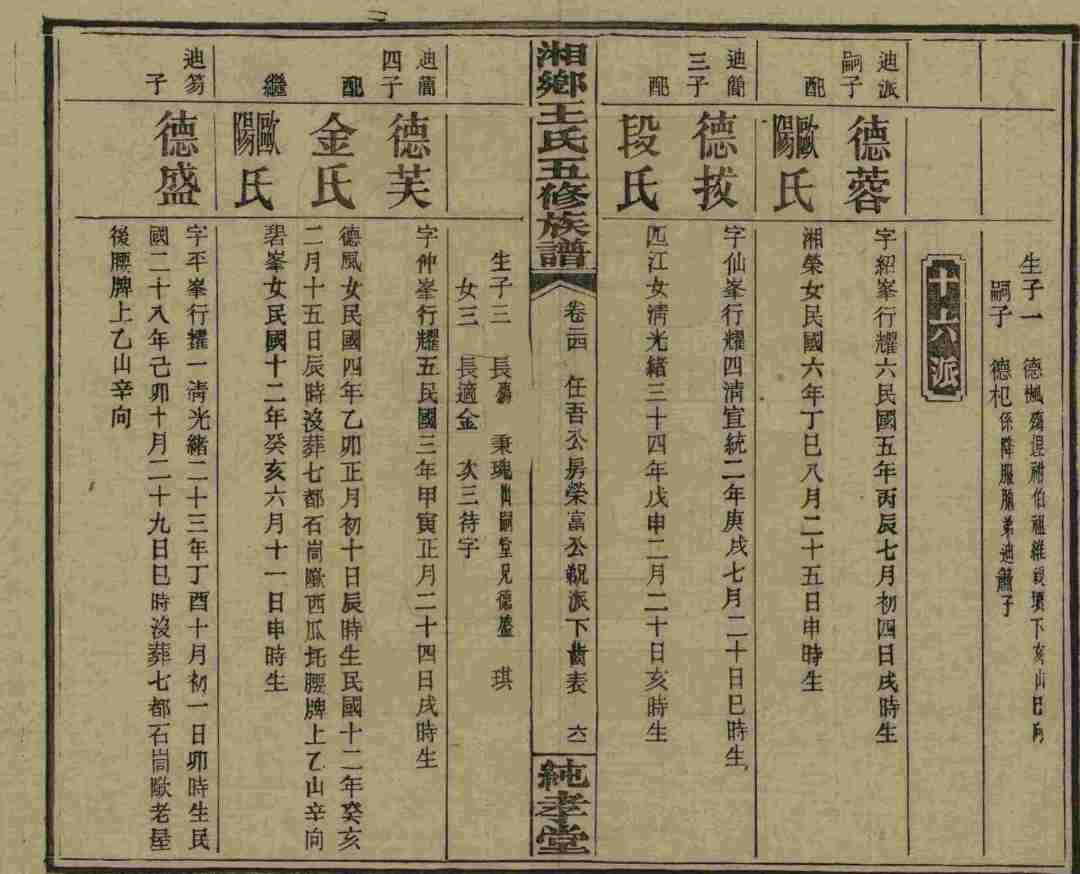 生子一　德楓殤葬祔伯祖維
下亥山巳向
嗣子　德杞係降服胞弟迪簫子
十六派
迪派嗣子
德蓉
字紹峯行耀六民國五年丙辰七月初四日戌時生
配
歐陽氏
湘榮女民國六年丁巳八月二十五日申時生
迪簡三子
德拔
字仙峯行耀四淸宣統二年庚戌七月二十日巳時生
配
段氏
匹江女淸光緒三十四年戊申二月二十日亥時生
湘鄉王氏五修族譜
卷三四　任吾公房榮富公派下齒表　六一
純孝堂
生子三　長壽　秉瑰出嗣堂兄德盛　琪
女三　長適金　次三待字
迪簡四子
德芙
字仲峯行耀五民國三年甲寅正月二十四日戌時生
配
金氏
德風女民國四年乙卯正月初十日辰時生民國十二年癸亥
二月十五日辰時沒葬七都石崗㘰西瓜坵腰牌上乙山辛向
繼
歐陽氏
碧峯女民國十二年癸亥六月十一日申時生
迪芻子
德盛
字平峯行耀一淸光緒二十三年丁酉十月初一日卯時生民
國二十八年己卯十月二十九日巳時沒葬七都石崗㘰老屋
後腰牌上乙山辛向